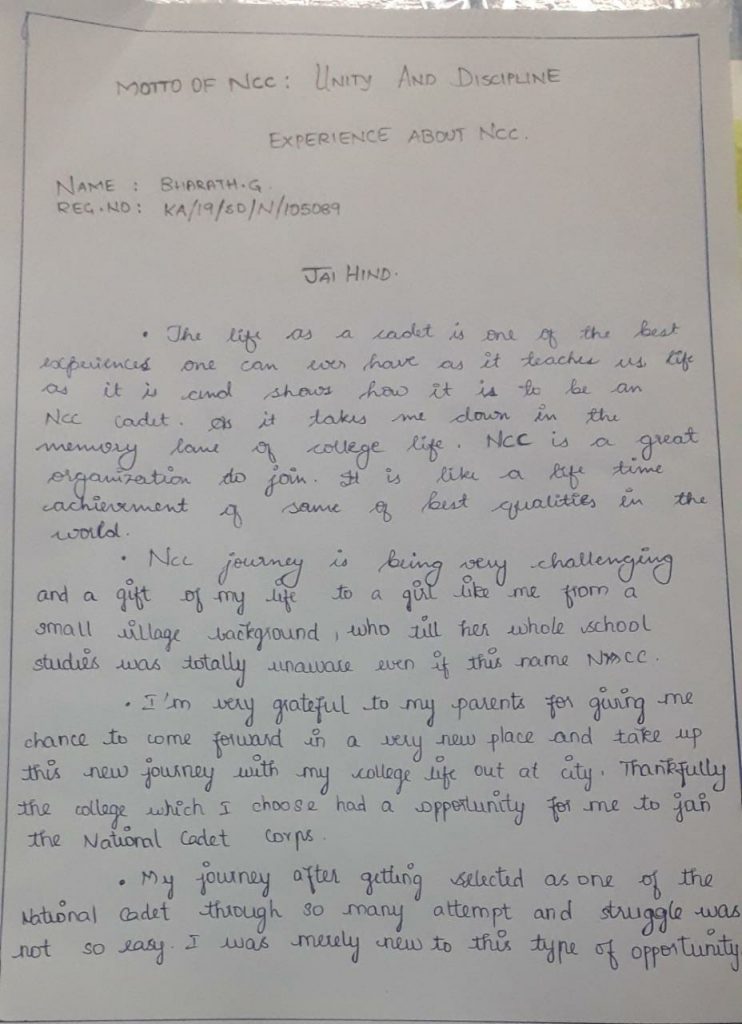 MOTTO OF NCC: UNITY AND DISCIPLINE
EXPERIENCE ABOUT NCC.
NAME : BHARATH.G.
REG.NO: KA/19/SD/N/105089
JAI HIND.
• The life as a cadet is one of the best
experiences one can ever have as it teaches us life
as it is and shows how it is to be an
NCC cadet. as it takes me down in the
memory lane of college life. NCC is a great
organization to join. It is like a life time
achievement of same of best qualities in the
world.
• NCC journey is being very challenging
and a gift of my life to a girl like me from a
small village background, who till her whole school
studies was totally unaware even if this name NCC.
• I'm very grateful to my parents for giving me
chance to come forward in a very new place and take up
this new journey with my college life out at city. Thankfully
the college which I choose had a opportunity for me to join
the National Cadet Corps.
• My journey after getting selected as one of the
National Cadet through so many attempt and struggle was
not so easy. I was merely new to this type of opportunity